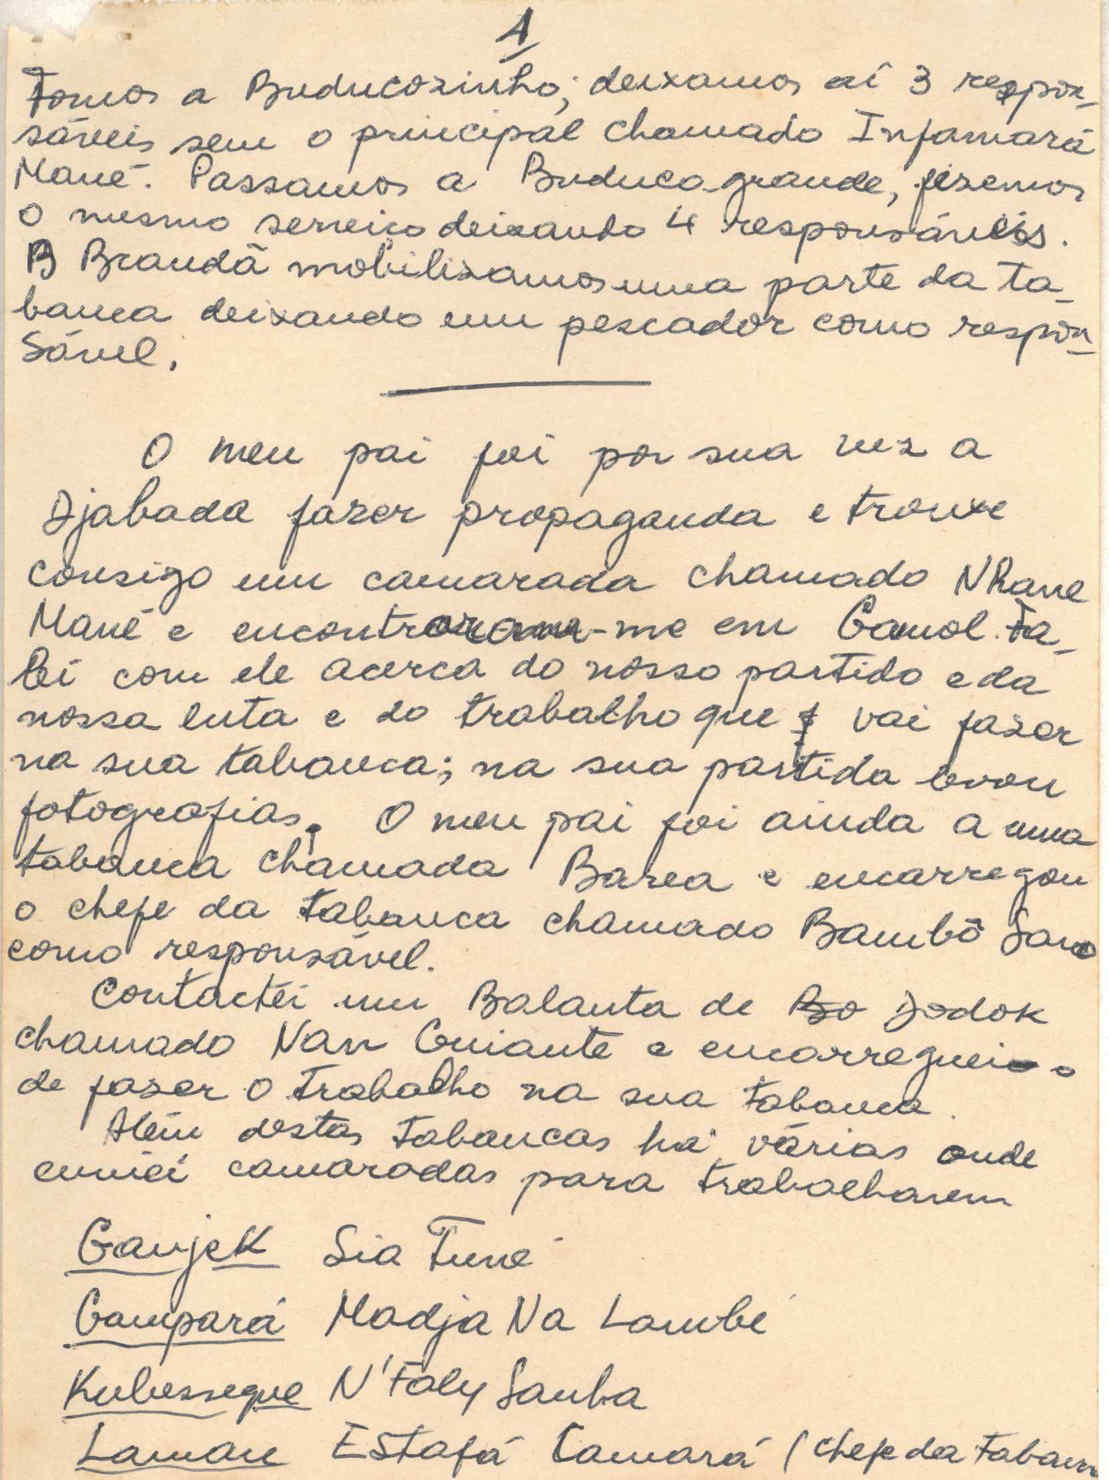 1
Fomos a Buducozinho; deixamos aí 3 respon-
sáveis sem o principal chamado Infamará
Mané. Passamos a Buduco-grande, fizemos
o mesmo serviço deixando 4 responsáveis.
B Brandã mobilizamos uma parte da ta-
banca deixando um pescador como respon-
sável.
O meu pai foi por sua vez a
Djabada fazer propaganda e trouxe
consigo um camarada chamado
Mané e encontraram-me em Gamol. Fa-
lei com ele acerca do nosso partido e da
nossa luta e do trabalho que vai fazer
na sua tabanca; na sua partida levou
fotografias. O meu pai foi ainda a uma
tabanca chamada Barea e encarregou
o chefe da tabanca chamado Bambô Sano
como responsável.
Contactei um Balanta de Bo Dodok
chamado Nan Guiante e encarreguei-o
de fazer o trabalho na sua tabanca.
Além destas tabancas há várias onde
enviei camaradas para trabalharem
Ganjek Sia Turé
Gampará Madja Na Lambé
Kubessegue N'Faly Sanha
Laman Estafá Camará (chefe da Taban